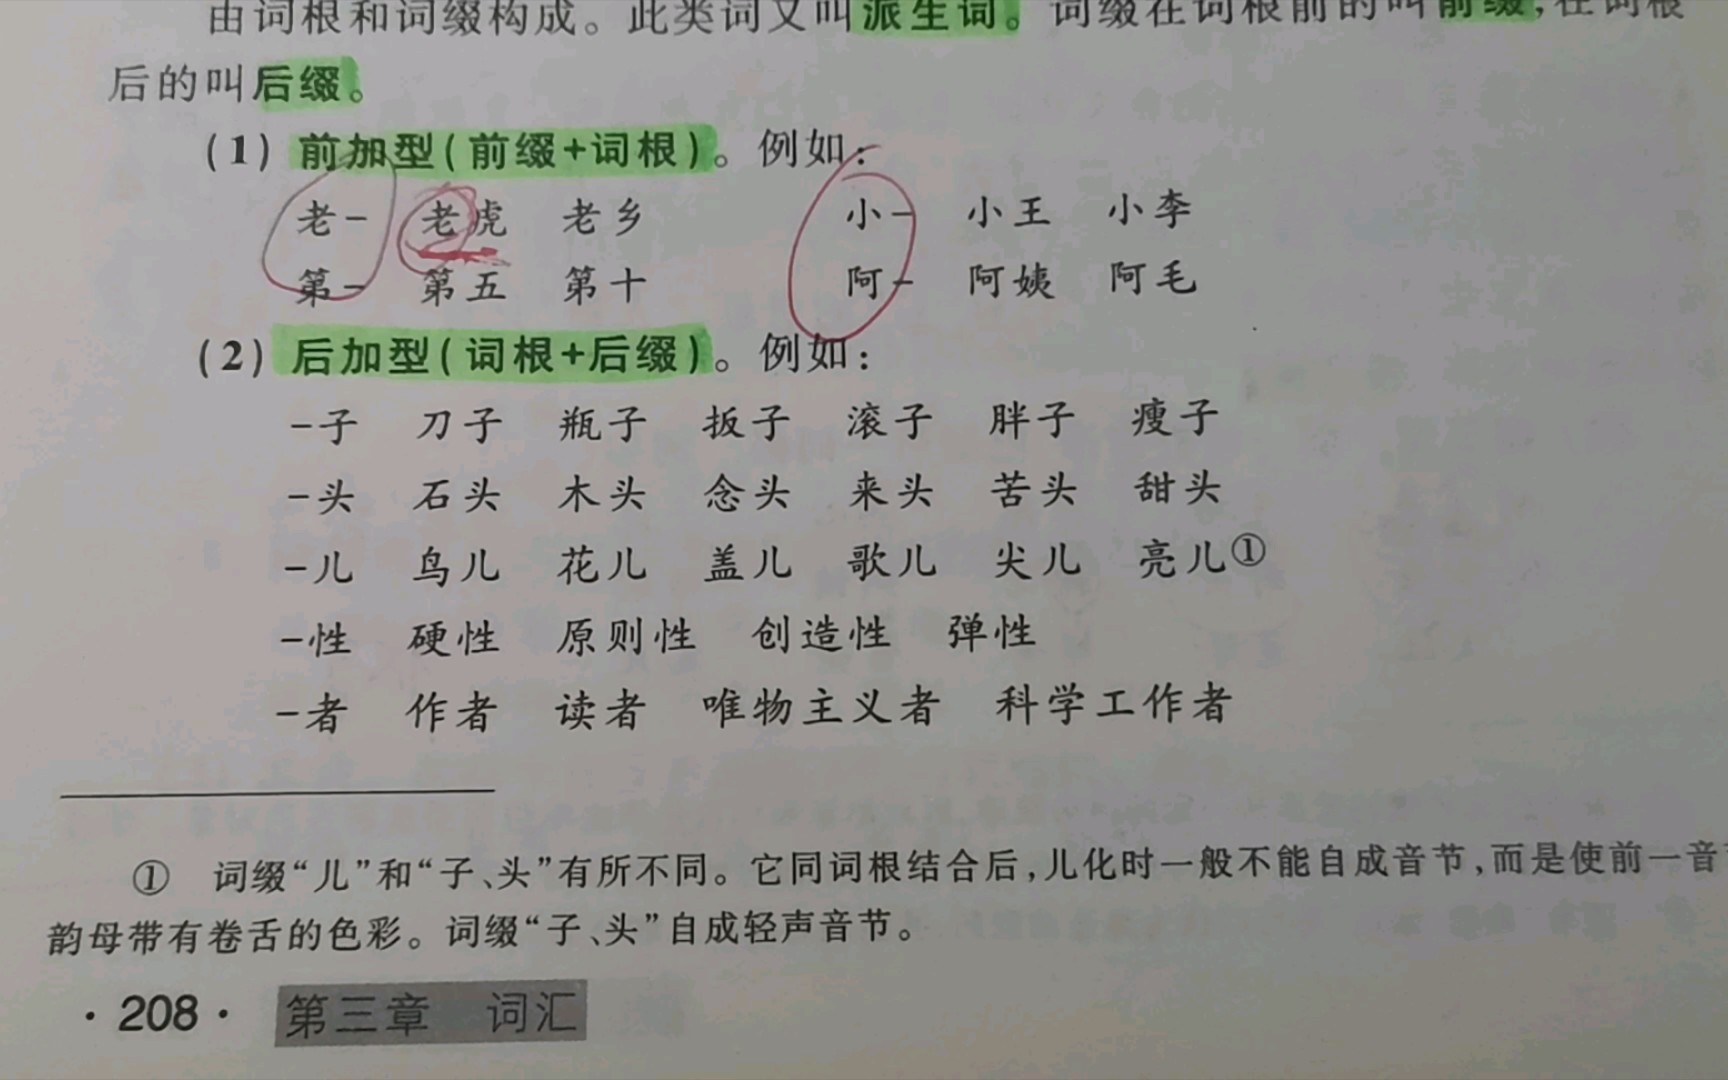 由词根和词缀构成。此类词又叫派生词。词缀在词根前的叫前缀,在词根
后的叫后缀。
(1) 前加型(前缀+词根)。例如:
老- 老虎 老乡 小- 小王 小李
第- 第五 第十 阿- 阿姨 阿毛
(2) 后加型(词根+后缀)。例如:
-子 刀子 瓶子 扳子 滚子 胖子 瘦子
-头 石头 木头 念头 来头 苦头 甜头
-儿 鸟儿 花儿 盖儿 歌儿 尖儿 亮儿①
-性 硬性 原则性 创造性 弹性
-者 作者 读者 唯物主义者 科学工作者
① 词缀“儿”和“子、头”有所不同。它同词根结合后,儿化时一般不能自成音节,而是使前一音
韵母带有卷舌的色彩。词缀“子、头”自成轻声音节。
·208· 第三章 词汇